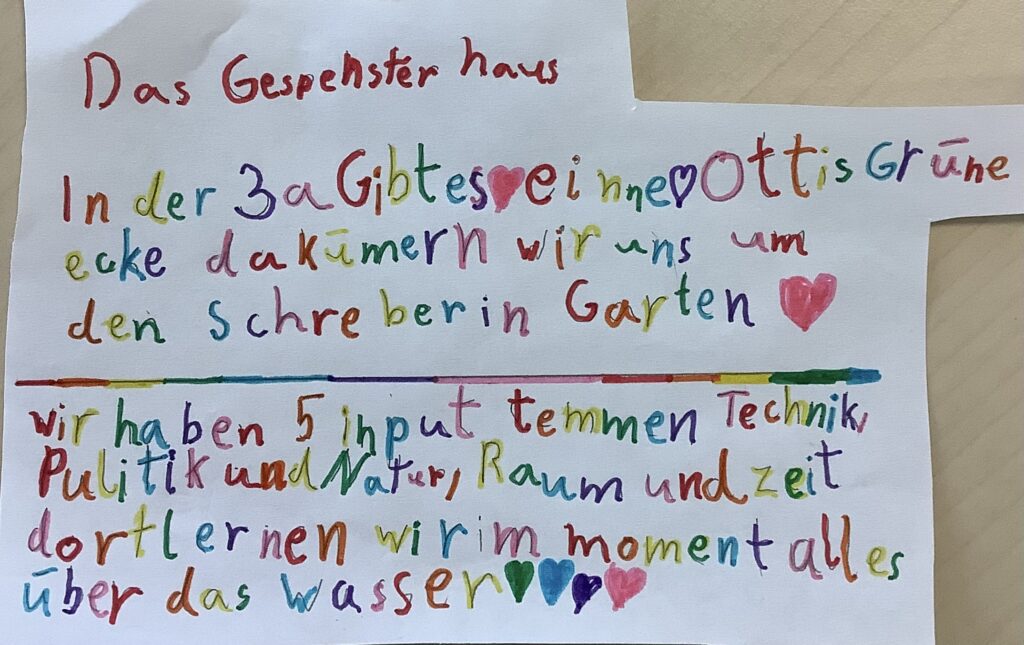 Das Gespenster haus
In der 3a Gibtes einne Ottis Grüne
ecke da kümern wir uns um
den Schreberin Garten
wir haben 5 input temmen Technik,
Pulitik und Natur, Raum und zeit
dort lernen wir im moment alles
über das wasser